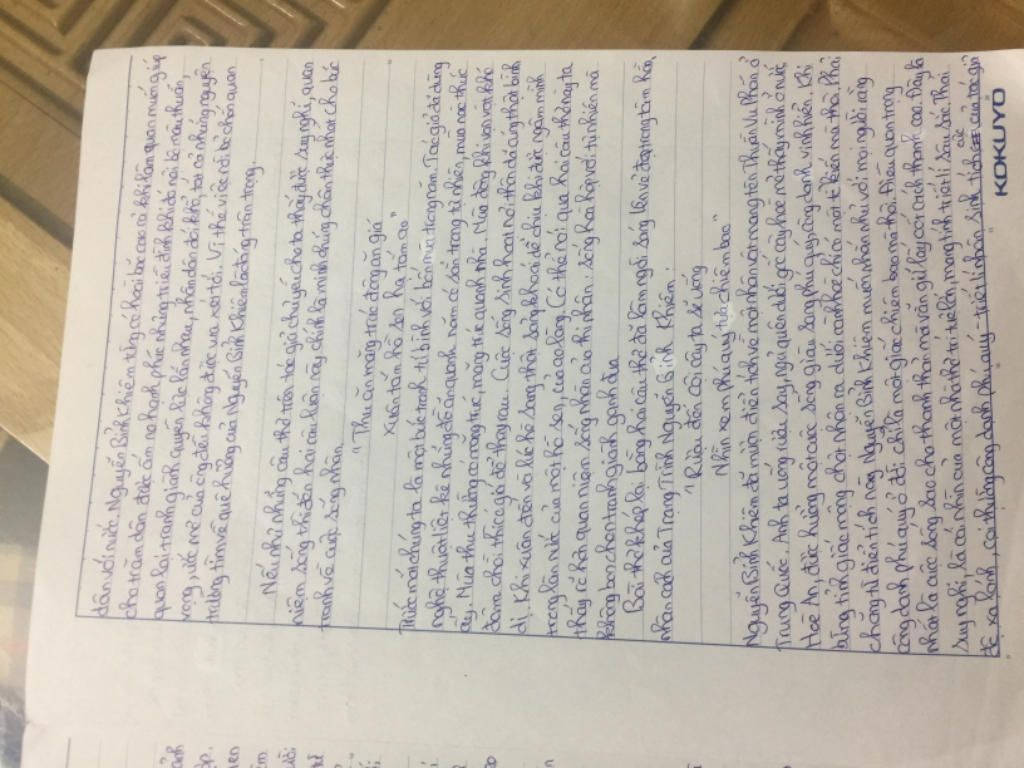 dân với nước. Nguyễn Bỉnh Khiêm từng có hoài bão cao cả khi làm quan muốn giúp
cho trăm dân được ấm no hạnh phúc nhưng triều đình khi đó nổi bè mâu thuẫn,
quan lại tranh giành quyền lực lẫn nhau, nhân dân đói khổ, tất cả những nguyện
vọng, ước mơ của ông đều không được vua xét tới. Vì thế việc rời bỏ chốn quan
trường tìm về quê hương của Nguyễn Bỉnh Khiêm là đáng trân trọng.
Nếu như những câu thơ trên tác giả chủ yếu cho ta thấy được suy nghĩ, quan
niệm sống thì đến hai câu luận này chính là minh chứng chân thực nhất cho bức
tranh về cuộc sống nhàn.
"Thu ăn măng trúc đông ăn giá
Xuân tắm hồ sen hạ tắm ao"
Thức món chúng ta là một bức tranh tứ bình với bốn mùa trong năm. Tác giả đã dùng
nghệ thuật liệt kê những đồ ăn quanh năm có sẵn trong tự nhiên, mùa nào thức
ấy. Mùa thu thường có măng trúc, măng tre quanh nhà. Mùa đông khi vạn vật khó
đâm chồi thì có giá đỗ thay rau. Cuộc sống sinh hoạt nơi thôn dã cũng thật bình
dị. Khi xuân đến và hè hè sang thật sảng khoái dễ chịu khi được ngâm mình
trong làn nước của một hồ sen, của ao làng. Có thể nói qua hai câu thơ này ta
thấy rõ hơn quan niệm sống nhàn của thi nhân: sống hòa hợp với tự nhiên mà
không bon chen tranh giành ganh đua
Bài thơ khép lại bằng hai câu thơ đã làm ngời sáng lên vẻ đẹp trong tâm hồn,
nhân cách của Trạng Trình Nguyễn Bỉnh Khiêm.
"Rượu đến cội cây ta sẽ uống
Nhìn xem phú quý tựa chiêm bao"
Nguyễn Bỉnh Khiêm đã mượn điển tích về một nhân vật mang tên Thuần Vu Phần ở
Trung Quốc. Anh ta uống rượu say, ngủ quên dưới gốc cây hòe mơ thấy mình ở nước
Hòe An, được hưởng một cuộc sống giàu sang phú quý công danh vinh hiển. Khi
bừng tỉnh giấc mộng chợt nhận ra dưới cành hòe chỉ có một tổ kiến mà thôi. Phải
chăng từ điển tích này Nguyễn Bỉnh Khiêm muốn nhắn nhủ với mọi người rằng
công danh phú quý ở đời chỉ là một giấc chiêm bao mà thôi. Điều quan trọng
nhất là cuộc sống sao cho thanh thản mà vẫn giữ lấy cốt cách thanh cao. Đây là
suy nghĩ, là cái nhìn của một nhà thơ trí tiến, mang tính triết lí sâu sắc. Thái
các
độ xa lánh, coi thường công danh phú quý - triết lí nhân sinh tích của tác giả
KOKUYO